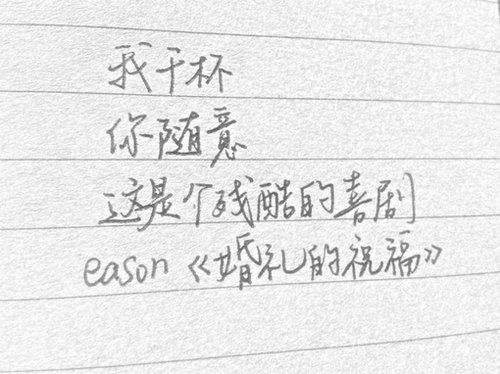 我干杯
你随意
这是个残酷的喜剧
eason《婚礼的祝福》